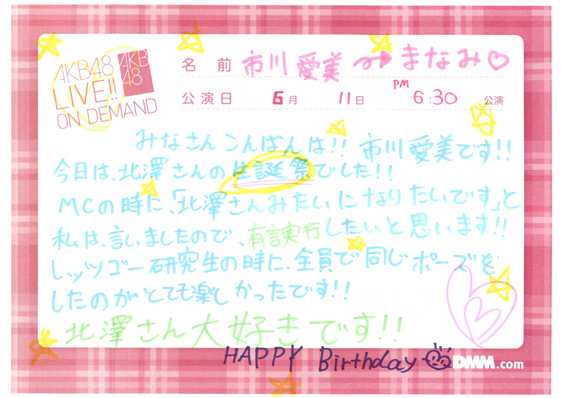 AKB48
LIVE!!
ON DEMAND
AKB
48
名 前 市川愛美 まなみ♡
公演日 6月 11日 PM 6:30 公演
みなさんこんばんは!! 市川愛美です!!
今日は、北澤さんの生誕祭でした!!
MCの時に、「北澤さんみたいになりたいです」と
私は、言いましたので、有言実行したいと思います!!
レッツゴー研究生の時に、全員で同じポーズを
したのがとても楽しかったです!!
北澤さん大好きです!!
HAPPY Birthday
DMM.com